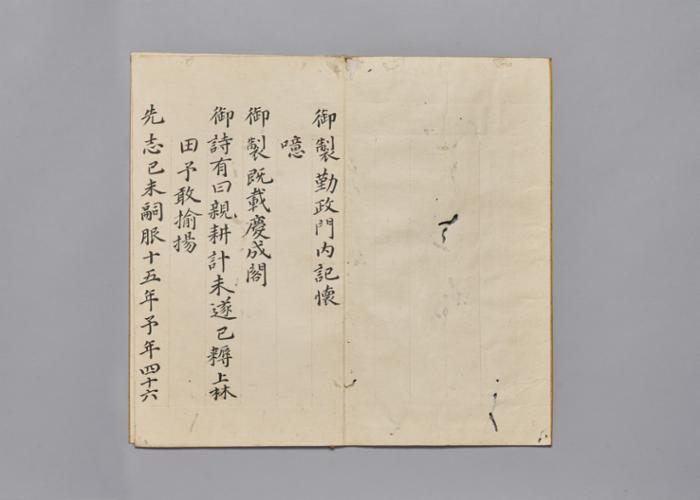 御製勤政門内記懷
噫
御製既載慶成閣
御詩有曰親耕計未遂已耨上林
田予敢揄揚
先志己未嗣服十五年予年四十六